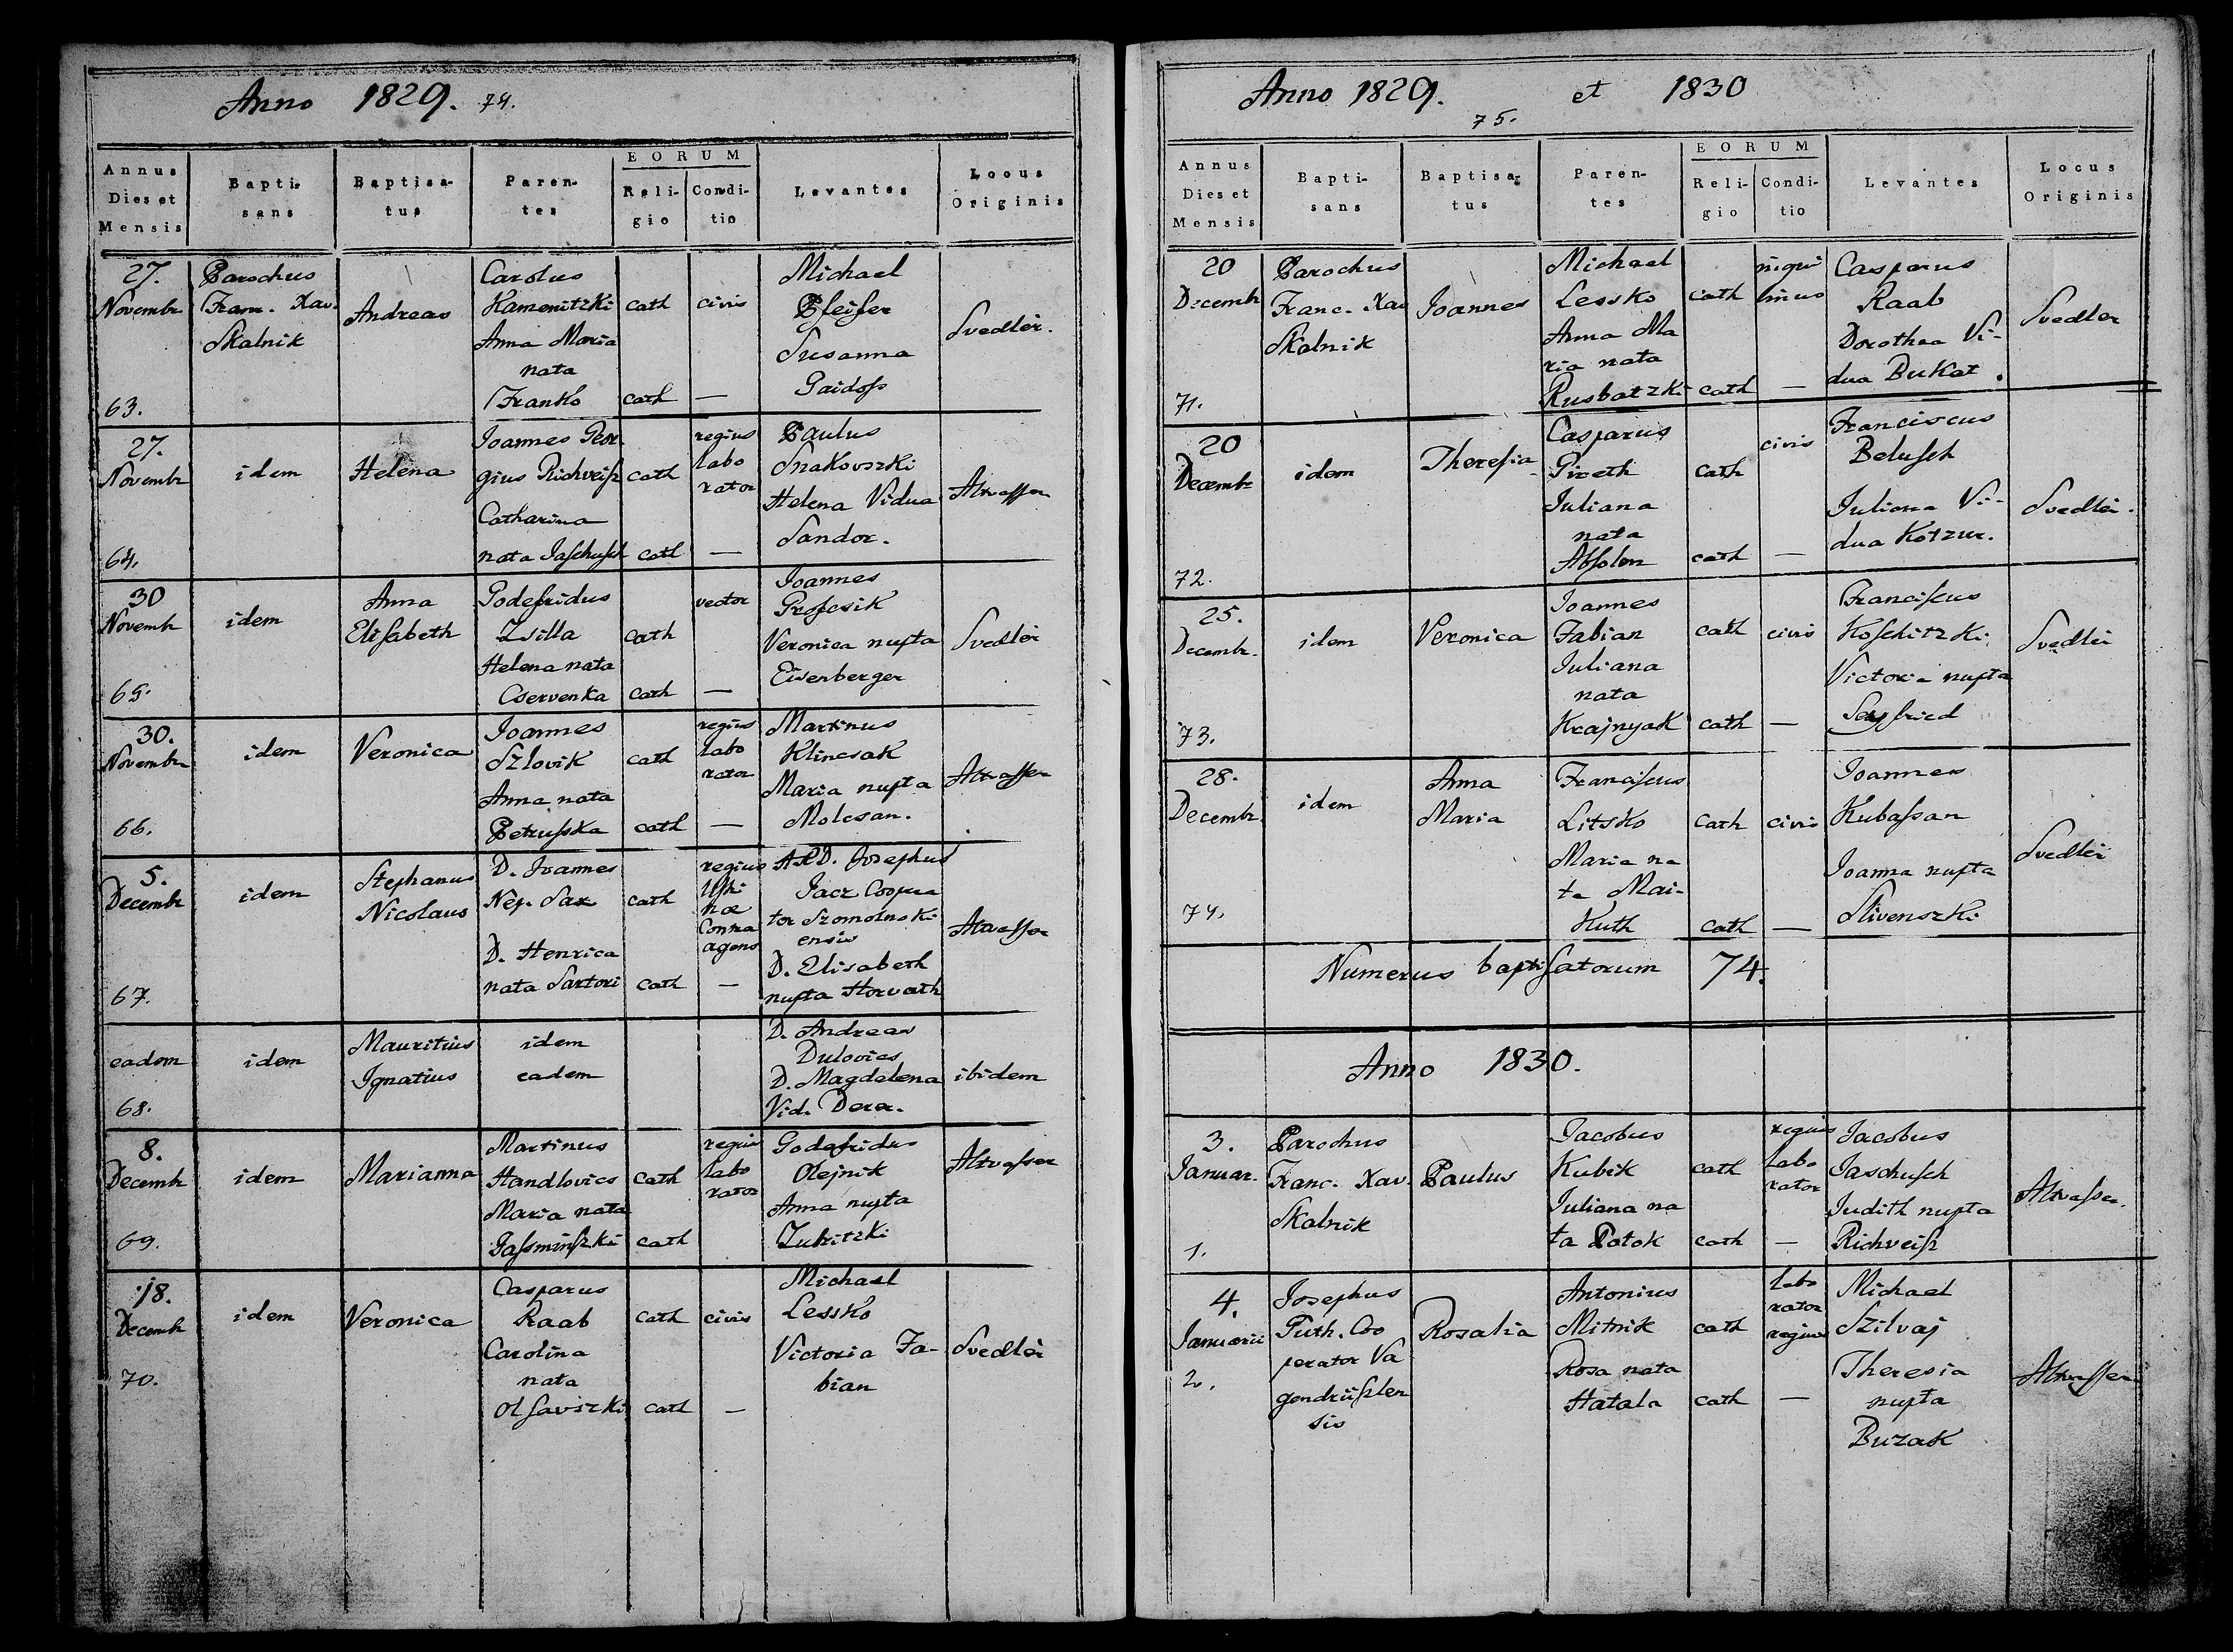 Anno 1829. 74.
Annus Dies et Mensis
Baptisans
Baptisatus
Parentes
EORUM
Religio
Conditio
Levantes
Locus Originis
27. Novembr
63.
Parochus
Franc. Xav.
Skalnik
Andreas
Carolus
Kamenitzki
Anna Maria
nata
Franko
cath
cath
civis
—
Michael
Pfeifer
Susanna
Gaidoſs
Svedlér.
27.
Novembr
64.
idem
Helena
Joannes Geor
gius Richveiſz
Catharina
nata Jaſchuſch
cath
cath
regius
labo
rator
—
Paulus
Snakovszki
Helena Vidua
Sandor.
Altvaſser
30
Novembr
65.
idem
Anna
Eliſabeth
Godefridus
Zsilla
Helena nata
Cservenka
cath
cath
vector
—
Joannes
Grofcsik
Veronica nupta
Eisenberger
Svedlér
30.
Novembr
66.
idem
Veronica
Joannes
Szlovik
Anna nata
Petruſska
cath
cath
regius
labo
rator
—
Martinus
Klincsak
Maria nupta
Molcsan.
Altvaſser
5.
Decembr
67.
idem
Stephanus
Nicolaus
D. Joannes
Nep. Sax
D. Henrica
nata Sartori
cath
cath
regius
agens
—
A.R.D. Josephus
Jacz Coopera
tor Szomolnoki
ensis
D. Elisabeth
nupta Horvath
Altvaſser
eadem
68.
idem
Mauritius
Ignatius
idem
eadem
D. Andreas
Dulovics
D. Magdalena
Vid. Derer.
ibidem
8.
Decembr
69.
idem
Marianna
Martinus
Handlovics
Maria nata
Jaſsminſzki
cath
cath
regius
labo
rator
Godefridus
Olejnik
Anna nupta
Zubritzki
Altvaſser
18.
Decembr
70.
idem
Veronica
Casparus
Raab
Carolina
nata
Olſavszki
cath
cath
civis
—
Michael
Lessko
Victoria Fa-
bian
Svedlér
Anno 1829. et 1830
75.
Annus Dies et Mensis
Baptisans
Baptisatus
Parentes
EORUM
Religio
Conditio
Levantes
Locus Originis
20
Decembr
71.
Parochus
Franc. Xav
Skalnik
Joannes
Michael
Lessko
Anna Ma
ria nata
Rusbatzki
cath
cath
inqui
linus
—
Casparus
Raab
Dorothea Vi-
dua Bukat.
Svedler
20
Decembr
72.
idem
Thereſia
Casparus
Gireth
Juliana
nata
Abſolon
cath
cath
civis
—
Franciscus
Beluſch
Juliana Vi-
dua Kotzur.
Svedlér.
25.
Decembr.
73.
idem
Veronica
Joannes
Fabian
Juliana
nata
Krajnyak
cath
cath
civis
—
Franciſcus
Koſchitzki
Victoria nupta
Seyfried
Svedlér
28.
Decembr.
74.
idem
Anna
Maria
Franciſcus
Litsko
Maria na
ta Mai-
Kuth
cath
cath
civis
—
Joannes
Kubaſsan
Joanna nupta
Slivenszki
Svedlér
Numerus baptiſatorum 74.
Anno 1830.
3.
Januar.
1.
Parochus
Franc. Xav.
Skalnik
Paulus
Jacobus
Kubik
Juliana na
ta Potok
cath
cath
regius
labo
rator
—
Jacobus
Jaschuſch
Judith nupta
Richveiſz
Altvaſser.
4.
Januarii
2.
Josephus
Guth. Coo
perator Va
gendrüſzlen
sis
Rosalia
Antonius
Mitnik
Rosa nata
Hatala
cath
cath
labo
rator
regius
—
Michael
Szilvaj
Theresia
nupta
Buzak
Altvaſser